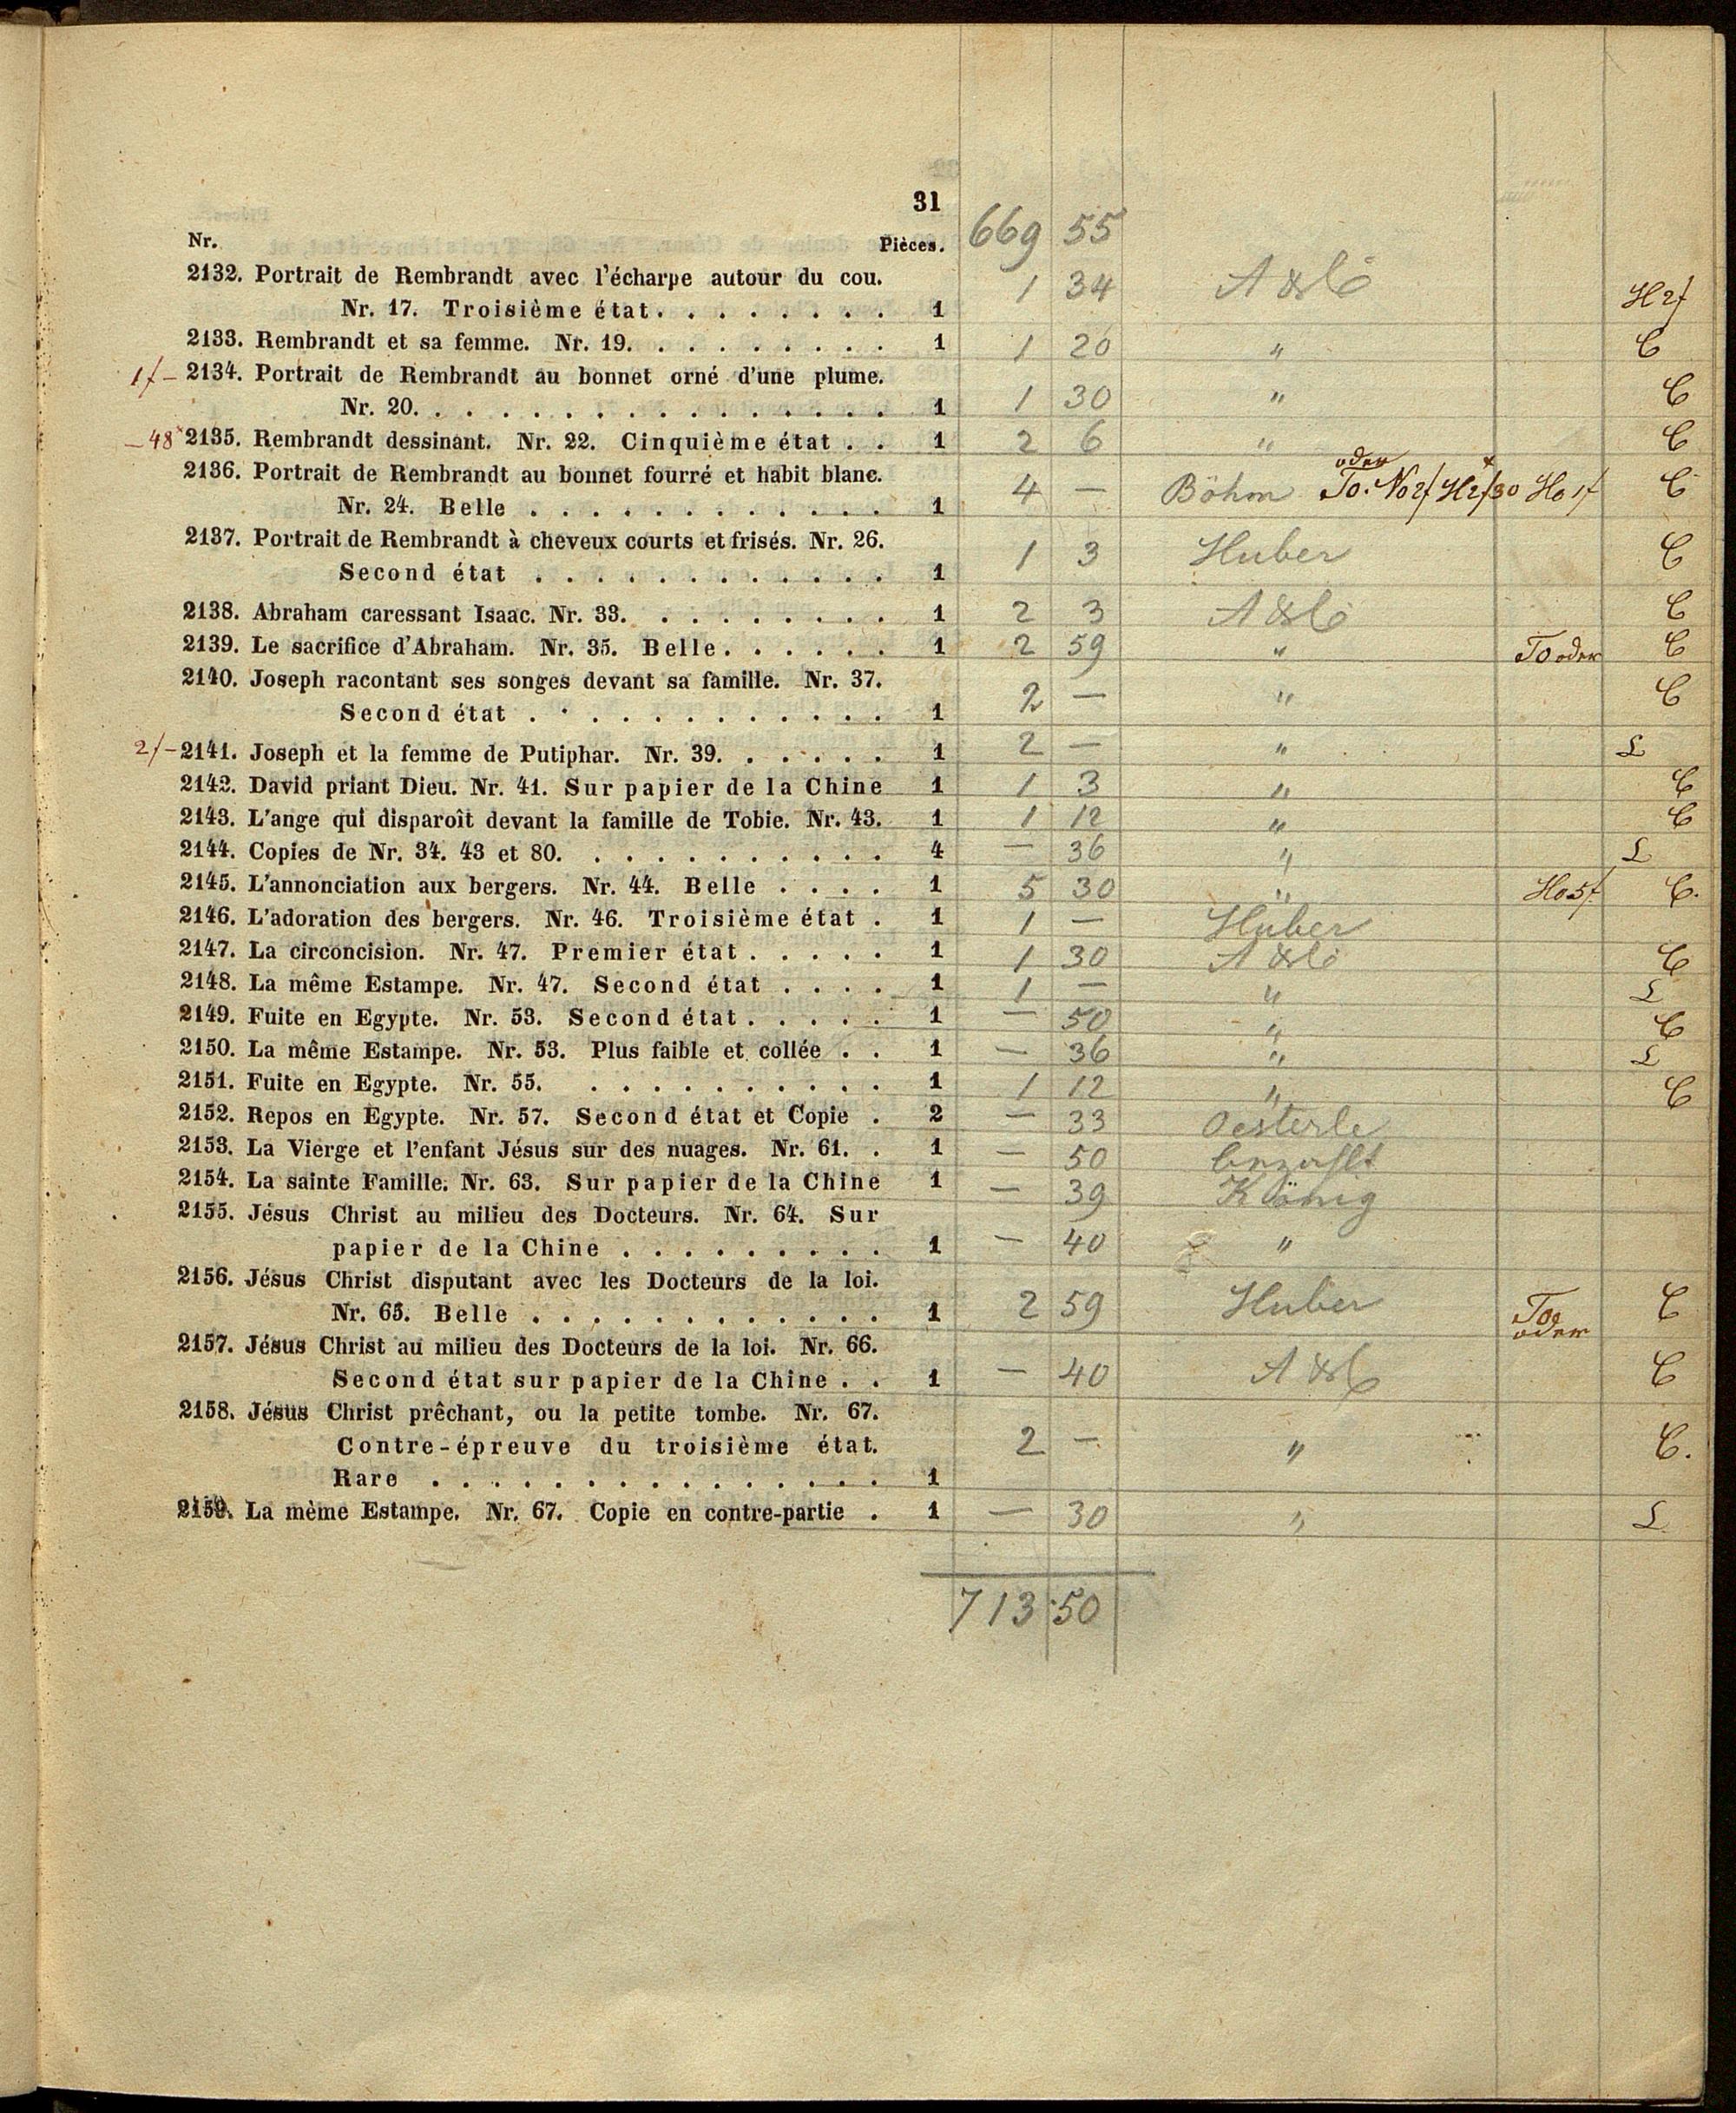 31
Nr. Pièces. 669 55
2132. Portrait de Rembrandt avec l'écharpe autour du cou. 1 34
Nr. 17. Troisième état. . . . . . . . 1 H 2f
2133. Rembrandt et sa femme. Nr. 19. . . . . . . . . 1 1 20 " C
1f – 2134. Portrait de Rembrandt au bonnet orné d'une plume.
Nr. 20. . . . . . . . . . . . . . . . 1 1 30 " C
– 48 2135. Rembrandt dessinant. Nr. 22. Cinquième état . . 1 2 6 " C
2136. Portrait de Rembrandt au bonnet fourré et habit blanc. oder
Nr. 24. Belle . . . . . . . . . . . . 1 4 — Böhm To. No 2f H 2f 30 Ho 1f C
2137. Portrait de Rembrandt à cheveux courts et frisés. Nr. 26.
Second état . . . . . . . . . . . . 1 1 3 Huber C
2138. Abraham caressant Isaac. Nr. 33. . . . . . . . . 1 2 3 C
2139. Le sacrifice d'Abraham. Nr. 35. Belle. . . . . . 1 2 59 " To oder C
2140. Joseph racontant ses songes devant sa famille. Nr. 37.
Second état . . . . . . . . . . . . 1 2 — " C
2f – 2141. Joseph et la femme de Putiphar. Nr. 39. . . . . . 1 2 — " L
2142. David priant Dieu. Nr. 41. Sur papier de la Chine 1 1 3 " C
2143. L'ange qui disparoît devant la famille de Tobie. Nr. 43. 1 1 12 " C
2144. Copies de Nr. 34. 43 et 80. . . . . . . . . . . 4 — 36 " L
2145. L'annonciation aux bergers. Nr. 44. Belle . . . . 1 5 30 " Ho 5f C.
2146. L'adoration des bergers. Nr. 46. Troisième état . 1 1 — Huber
2147. La circoncision. Nr. 47. Premier état . . . . . 1 1 30 C
2148. La même Estampe. Nr. 47. Second état . . . . 1 1 — " L
2149. Fuite en Egypte. Nr. 53. Second état . . . . . 1 — 50 " C
2150. La même Estampe. Nr. 53. Plus faible et collée . . 1 — 36 " L
2151. Fuite en Egypte. Nr. 55. . . . . . . . . . . 1 1 12 " C
2152. Repos en Egypte. Nr. 57. Second état et Copie . 2 — 33 Oesterle
2153. La Vierge et l'enfant Jésus sur des nuages. Nr. 61. . 1 — 50 bezahlt
2154. La sainte Famille. Nr. 63. Sur papier de la Chine 1 — 39 König
2155. Jésus Christ au milieu des Docteurs. Nr. 64. Sur
papier de la Chine . . . . . . . . . 1 — 40 "
2156. Jésus Christ disputant avec les Docteurs de la loi.
Nr. 65. Belle . . . . . . . . . . . . 1 2 59 Huber To oder C
2157. Jésus Christ au milieu des Docteurs de la loi. Nr. 66.
Second état sur papier de la Chine . . 1 — 40 C
2158. Jésus Christ prêchant, ou la petite tombe. Nr. 67.
Contre-épreuve du troisième état. 2 — " C.
Rare . . . . . . . . . . . . . . . 1
2159. La mème Estampe. Nr. 67. Copie en contre-partie . 1 — 30 " L
713 50